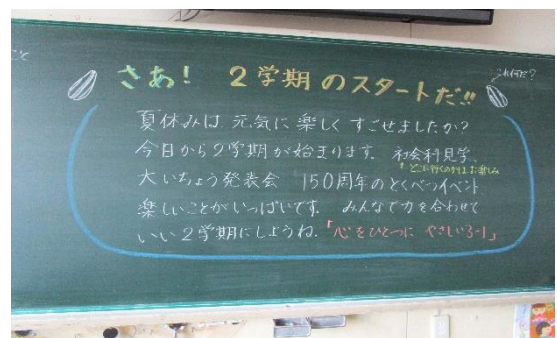 さあ! 2学期のスタートだ!!
これ何だ?
夏休みは 元気に 楽しく すごせましたか?
今日から2学期が始まります。 社会科見学、
どこに行くのかはお楽しみ
大いちょう発表会 150周年のとくべつイベント
楽しいことがいっぱいです。 みんなで力を合わせて
いい2学期にしようね。「心をひとつに やさしい3-1」